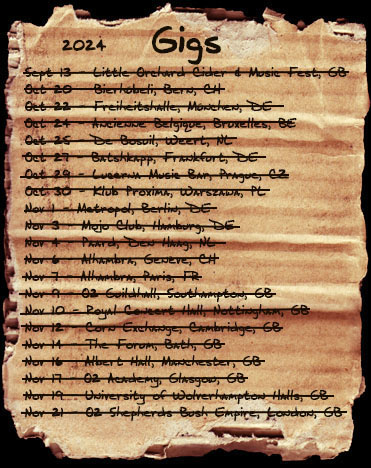 2024 Gigs
Sept 13 - Little Orchard Cider & Music Fest, GB
Oct 20 - Bierhübeli, Bern, CH
Oct 22 - Freiheitshalle, München, DE
Oct 24 - Ancienne Belgique, Bruxelles, BE
Oct 25 - De Bosuil, Weert, NL
Oct 27 - Batshkapp, Frankfurt, DE
Oct 29 - Lucerna Music Bar, Prague, CZ
Oct 30 - Klub Proxima, Warszawa, PL
Nov 1 - Metropol, Berlin, DE
Nov 3 - Mojo Club, Hamburg, DE
Nov 4 - Paard, Den Haag, NL
Nov 6 - Alhambra, Geneve, CH
Nov 7 - Alhambra, Paris, FR
Nov 9 - O2 Guildhall, Southampton, GB
Nov 10 - Royal Concert Hall, Nottingham, GB
Nov 12 - Corn Exchange, Cambridge, GB
Nov 14 - The Forum, Bath, GB
Nov 16 - Albert Hall, Manchester, GB
Nov 17 - O2 Academy, Glasgow, GB
Nov 19 - University of Wolverhampton Halls, GB
Nov 21 - O2 Shepherds Bush Empire, London, GB